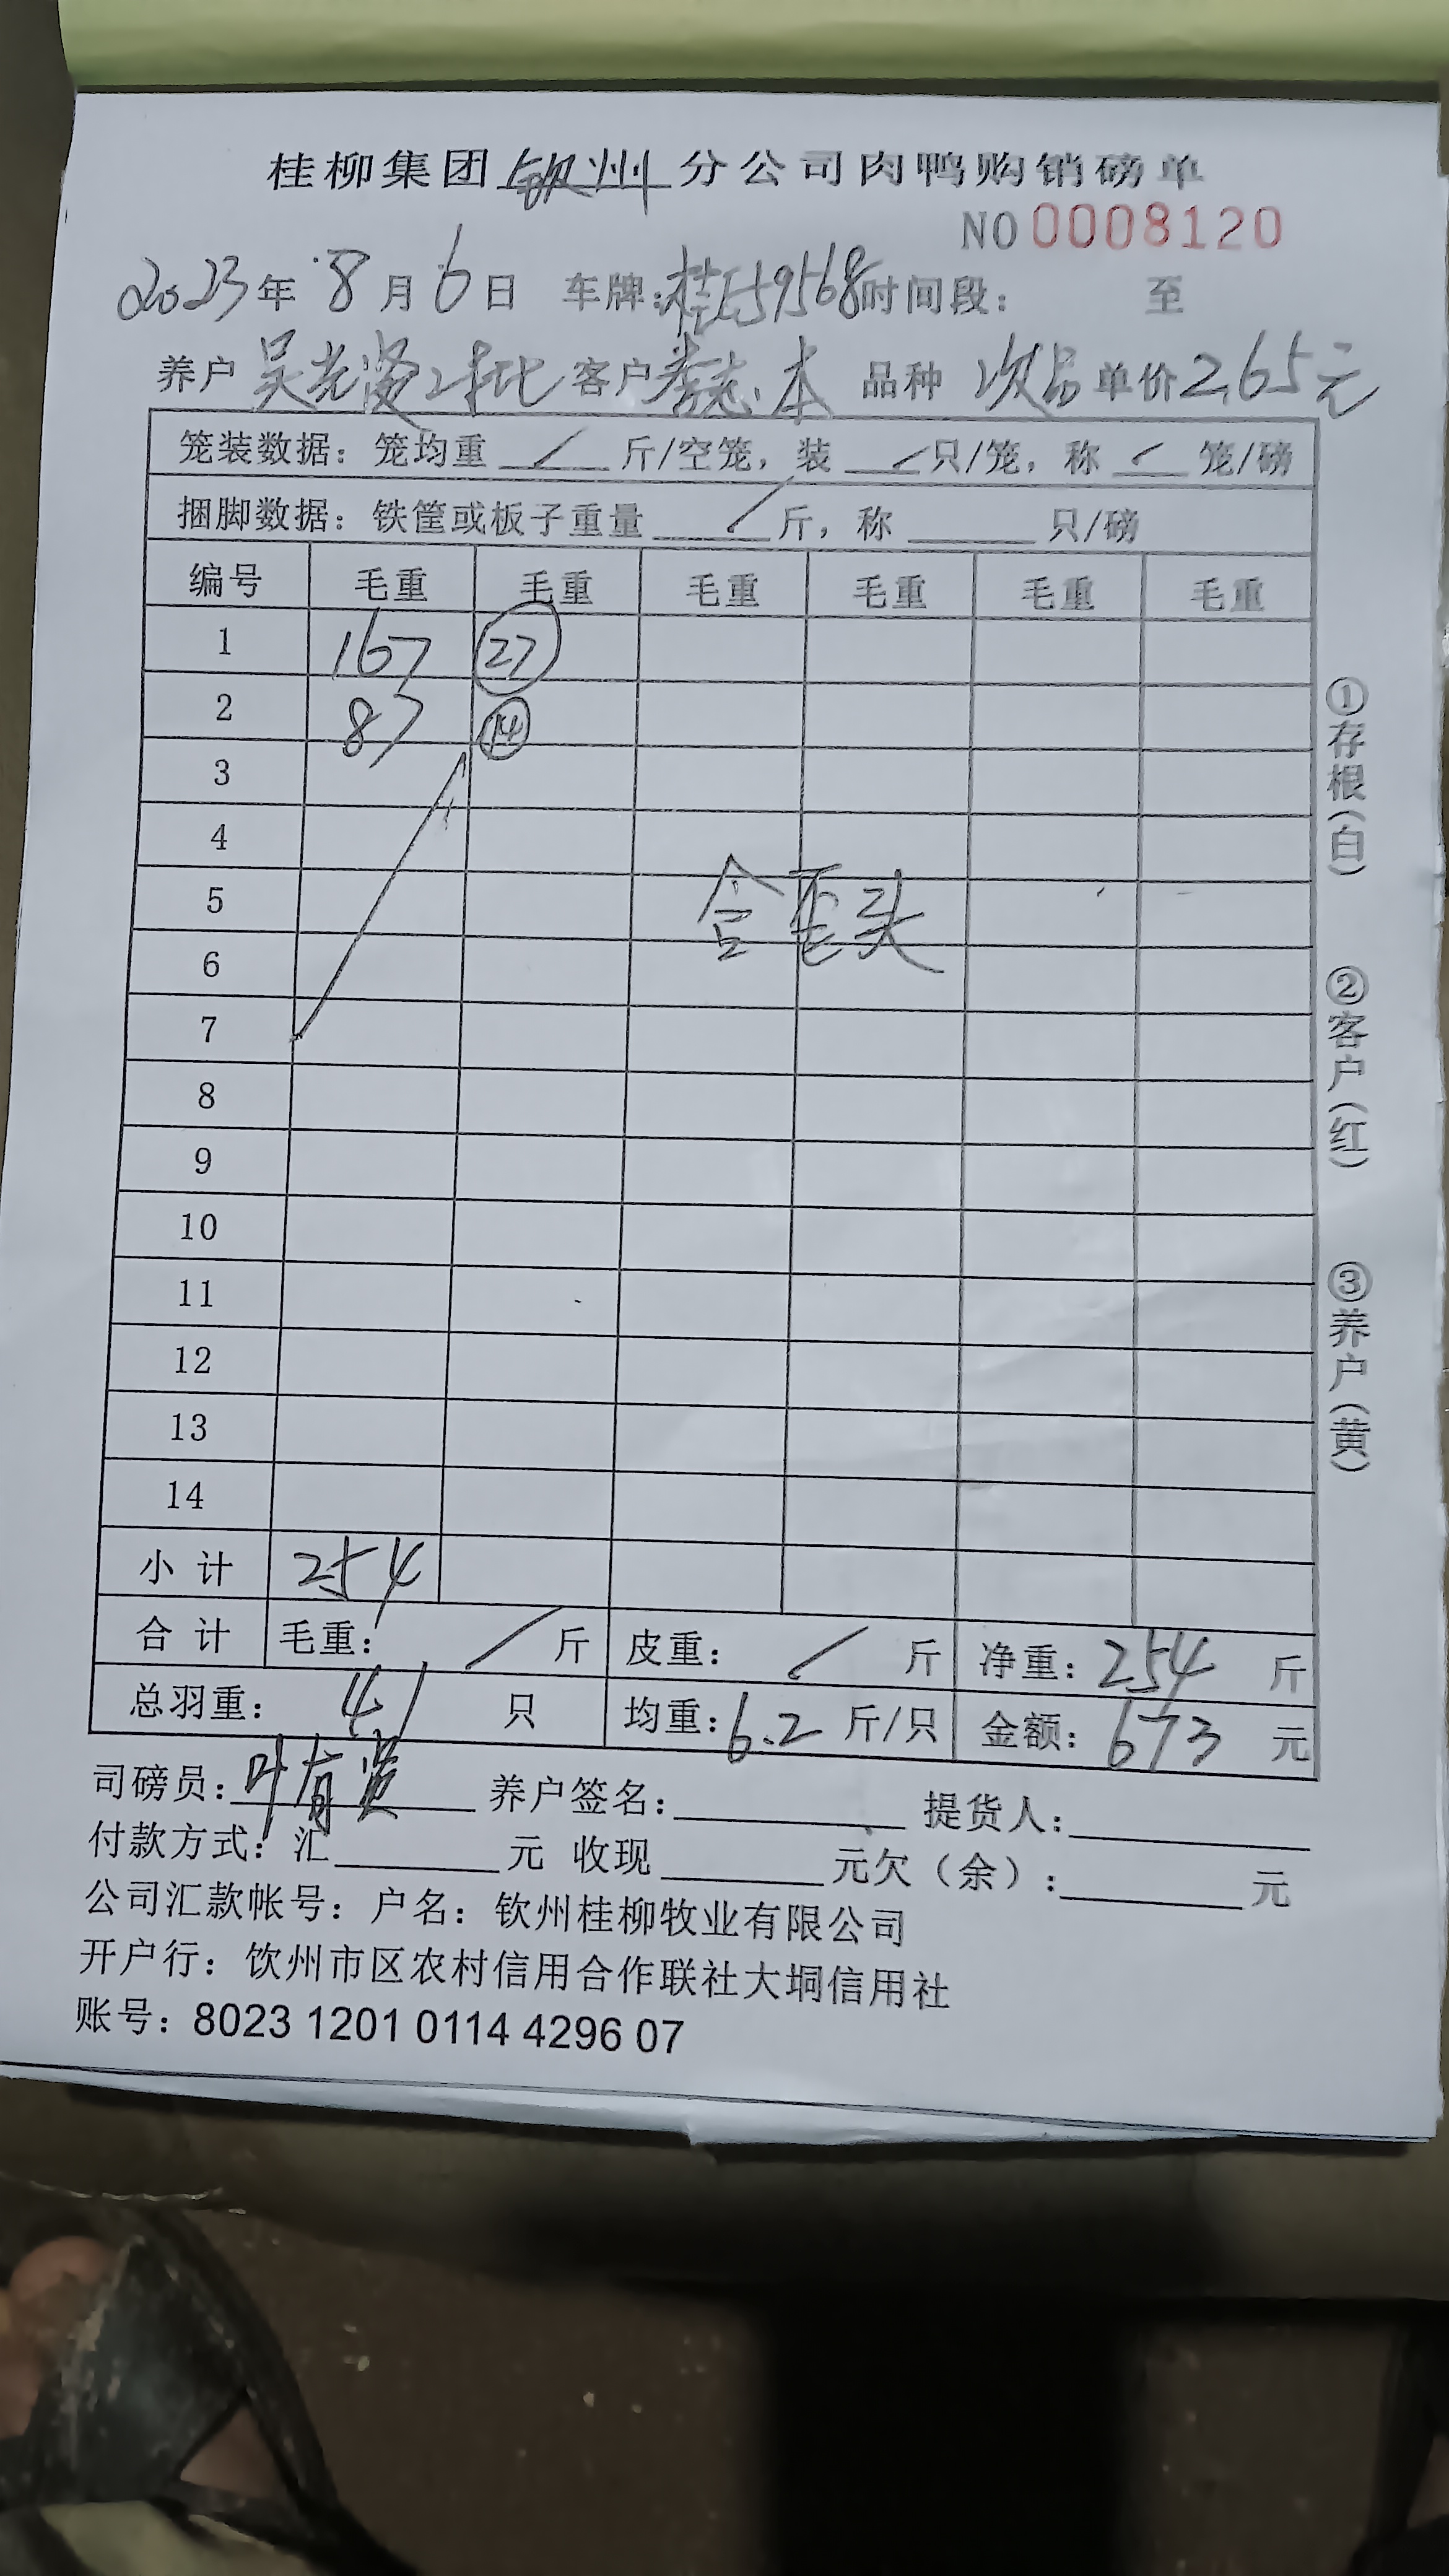 桂柳集团钦州分公司肉鸭购销磅单
NO 0008120
2023年 8月 6日 车牌:桂E59568时间段: 至
养户 吴光 2批 客户 李志本 品种 次品 单价 2.65元
笼装数据:笼均重 / 斤/空笼,装 / 只/笼,称 / 笼/磅
捆脚数据:铁筐或板子重量 / 斤,称 只/磅
编号 毛重 毛重 毛重 毛重 毛重 毛重
1 167 27
2 87 14
3
4
5 含歪头
6
7
8
9
10
11
12
13
14
小计 254
合计 毛重: / 斤 皮重: / 斤 净重:254 斤
总羽重: 41 只 均重:6.2 斤/只 金额:673 元
司磅员:叶育贤 养户签名: 提货人:
付款方式:汇 元 收现 元欠(余): 元
公司汇款帐号:户名:钦州桂柳牧业有限公司
开户行:饮州市区农村信用合作联社大垌信用社
账号:8023 1201 0114 4296 07
①存根(白) ②客户(红) ③养户(黄)